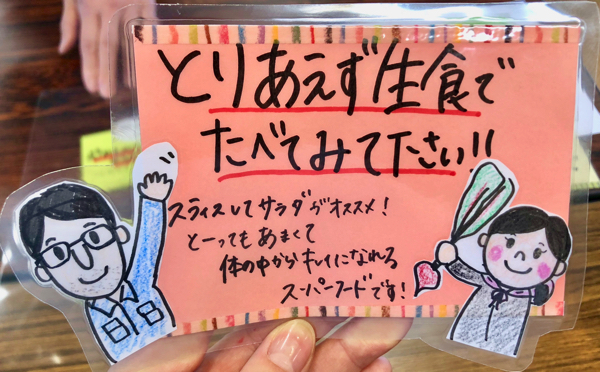 とりあえず生食で
たべてみて下さい!!
スライスしてサラダがオススメ!
とーってもあまくて
体の中からキレイになれる
スーパーフードです!